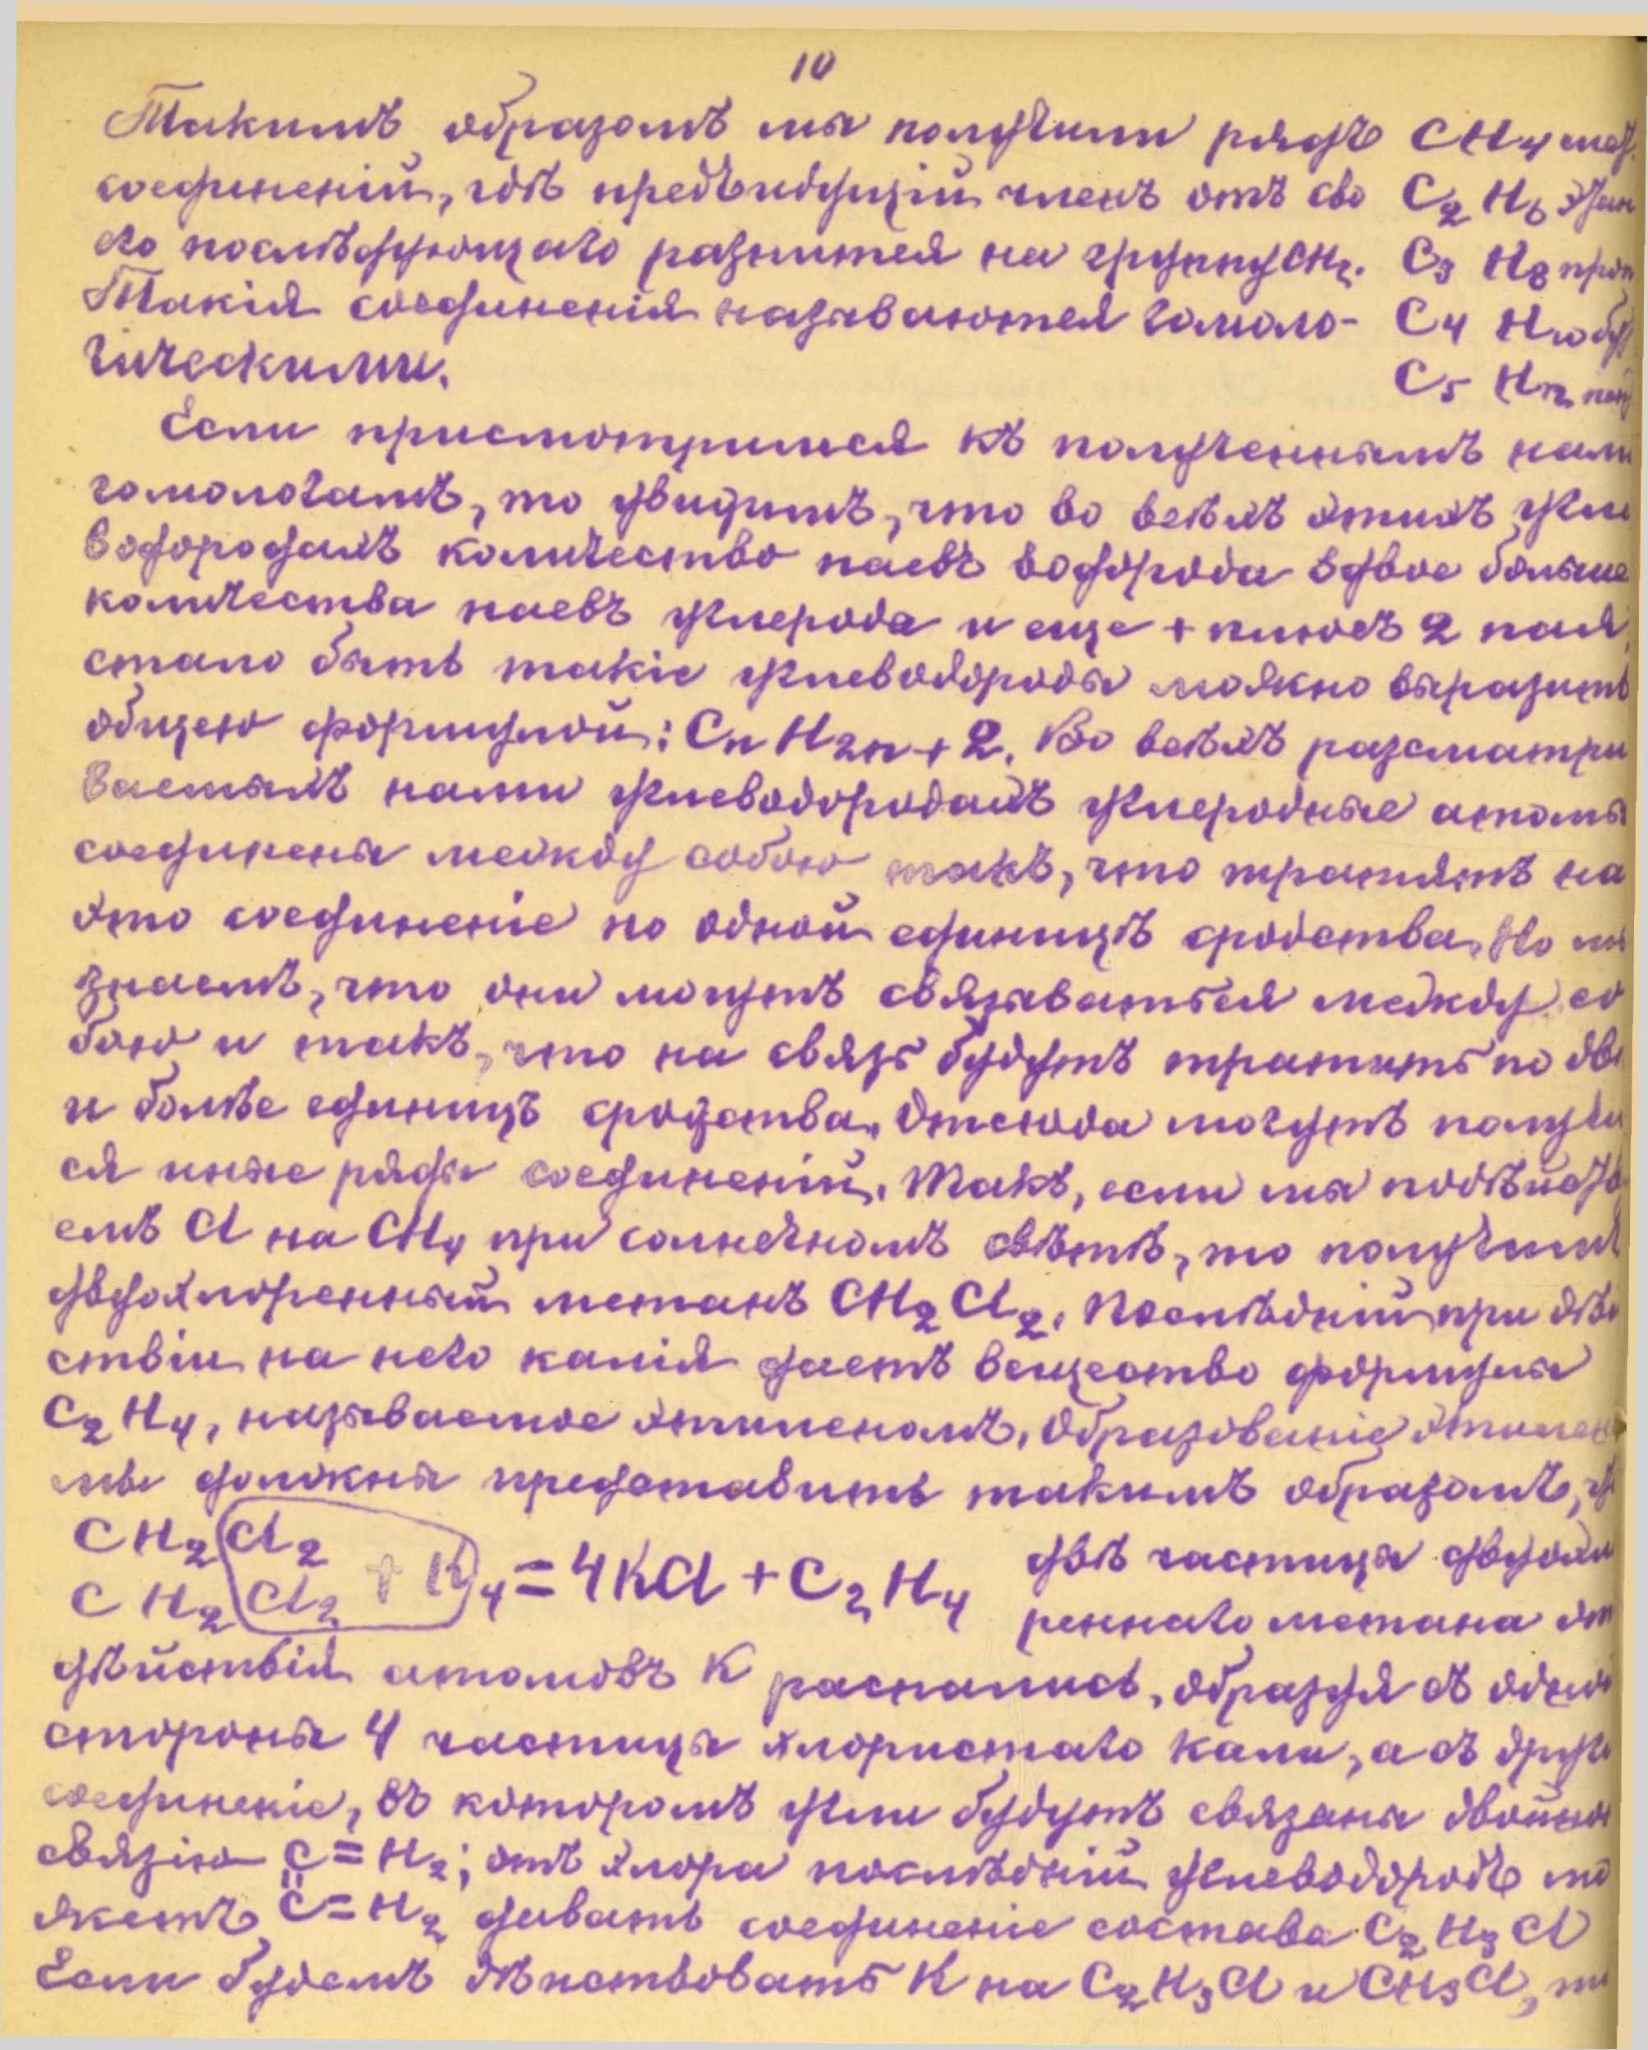 10
Такимъ образомъ мы получили рядъ CH4 мет.
соединеній, гдѣ предъидущій членъ отъ сво C2 H6 этан
его послѣдующаго разнится на группу CH2. C3 H8 проп
Такія соединенія называются гомоло- C4 H10 бут
гическими. C5 H12 пент
Если присмотримся къ полученнымъ нами
гомологамъ, то увидимъ, что во всѣхъ этихъ угле
водородахъ количество паевъ водорода вдвое больше
количества паевъ углерода и еще + плюсъ 2 пая,
стало быть такіе углеводороды можно выразить
общею формулой: CnH2n+2. Во всѣхъ разсматри
ваемыхъ нами углеводородахъ углеродные атомы
соединены между собою такъ, что тратятъ на
это соединеніе по одной единицѣ сродства. Но мы
знаемъ, что они могутъ связываться между со
бою и такъ, что на связь будутъ тратить по двѣ
и болѣе единицъ сродства. Отсюда могутъ получи
ся иные ряды соединеній. Такъ, если мы подѣйств
емъ Cl на CH4 при солнечномъ свѣтѣ, то получимъ
двухлоренный метанъ CH2Cl2. Послѣдній при дѣй
ствіи на него калія даетъ вещество формулы
C2H4, называемое этиленомъ. Образованіе этилен
мы должны представить такимъ образомъ,
CH2Cl2 двѣ частицы двухло
CH2Cl2 + K4 = 4KCl + C2H4 реннаго метана от
дѣйствія атомовъ K распались, образуя съ одной
стороны 4 частицы хлористаго кали, а съ друго
соединеніе, въ которомъ угли будутъ связаны двойною
связію C=H2; отъ хлора послѣдній углеводородъ мо
жетъ C=H2 давать соединеніе состава C2H3Cl
Если будемъ дѣйствовать K на C2H3Cl и CH3Cl, то